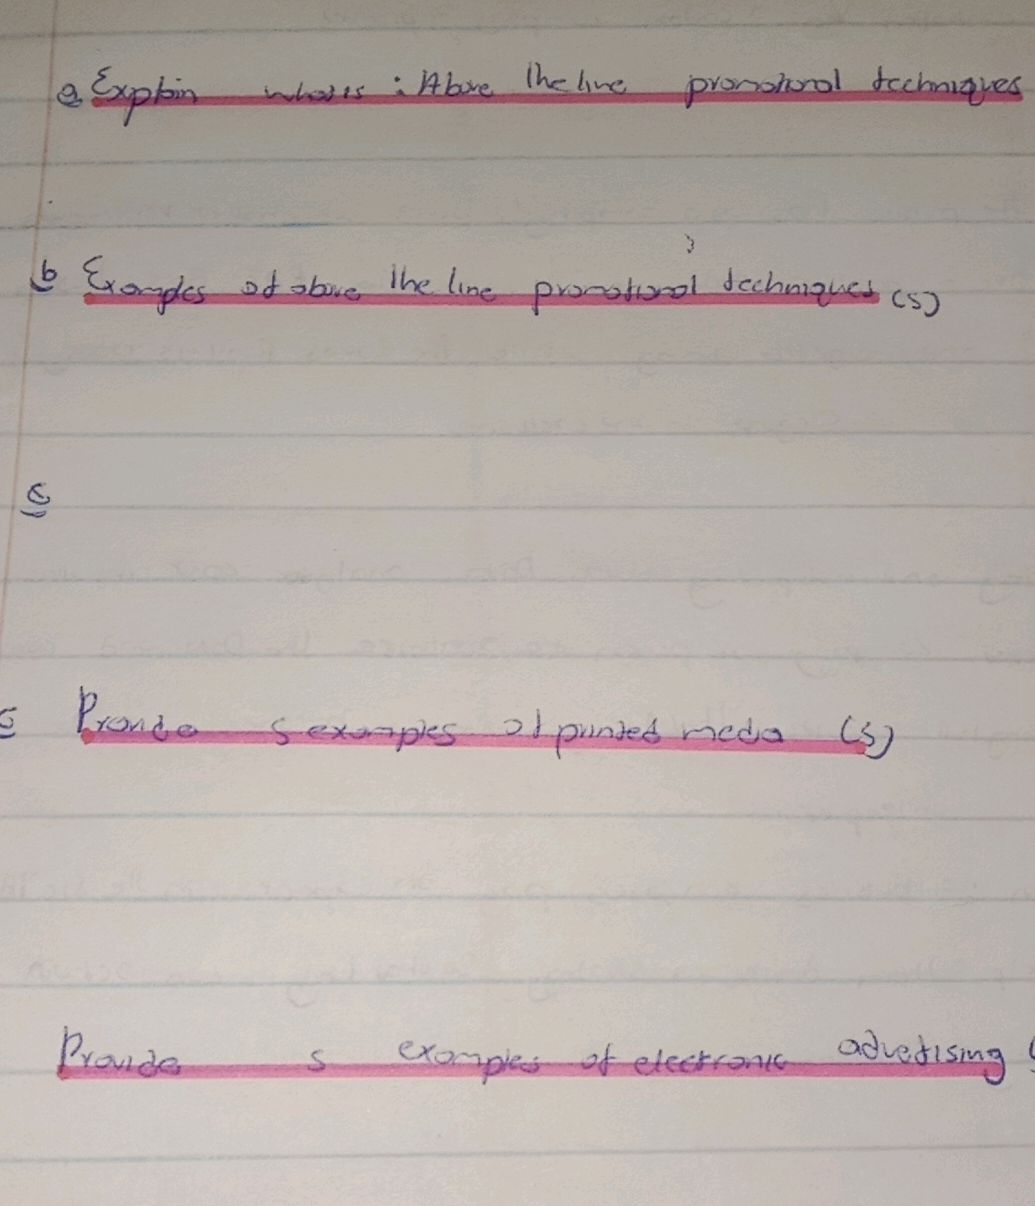 a Explain what is : Above the line promotional techniques
b Examples of above the line promotional techniques (5)
c
c Provide 5 examples of printed media (5)
Provide 5 examples of electronic advertising (